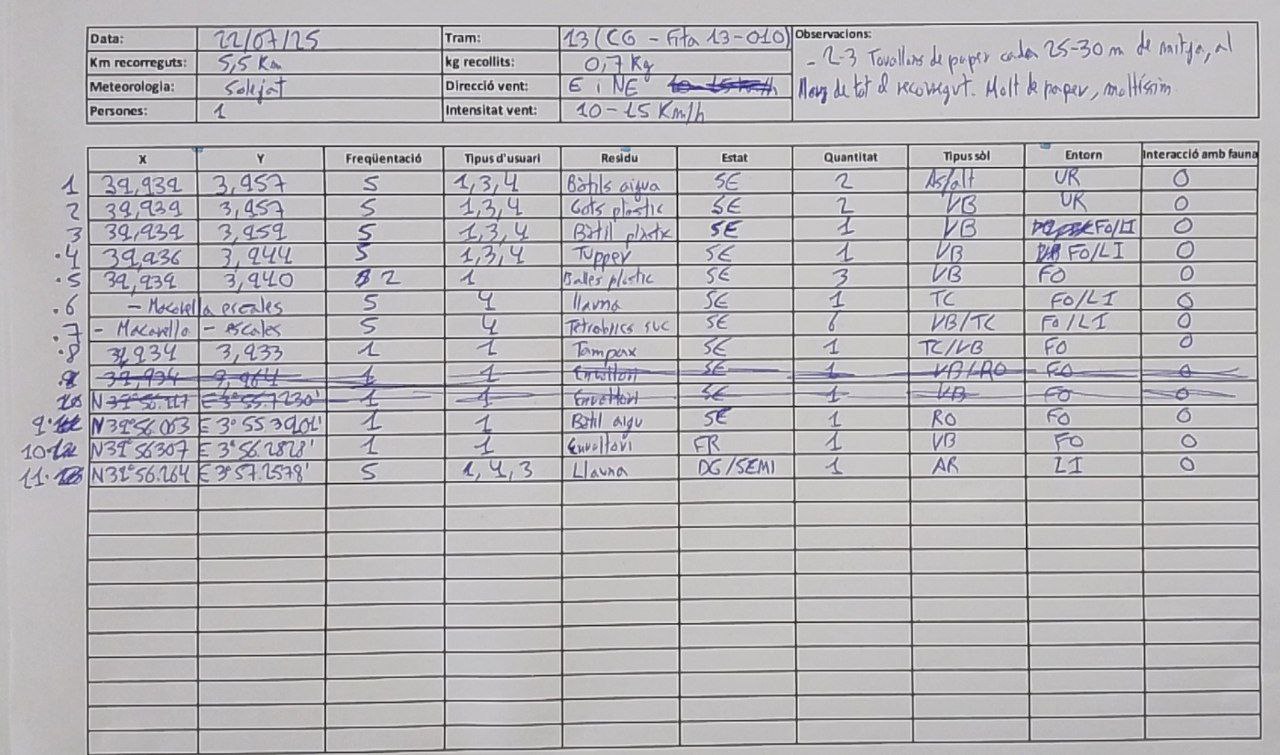 Data: 22/07/25 Tram: 13 (CG - Fita 13-010) Observacions:
Km recorreguts: 5,5 Km kg recollits: 0,7 Kg - 2-3 Tovallons de paper cada 25-30 m de mitja, al
Meteorologia: Solejat Direcció vent: E i NE llarg de tot el recorregut. Molt de paper, moltíssim.
Persones: 1 Intensitat vent: 10-15 Km/h
X Y Freqüentació Tipus d'usuari Residu Estat Quantitat Tipus sòl Entorn Interacció amb fauna
1 39,939 3,957 5 1,3,4 Botils aigua SE 2 Asfalt UR 0
2 39,939 3,957 5 1,3,4 Gots plastic SE 2 VB UR 0
3 39,939 3,959 5 1,3,4 Botil plastic SE 1 VB FO/LI 0
.4 39,936 3,944 5 1,3,4 Tupper SE 1 VB FO/LI 0
.5 39,939 3,940 2 1 Balles plastic SE 3 VB FO 0
.6 - Macarella escales 5 4 llauna SE 1 TC FO/LI 0
.7 - Macarella - escales 5 4 Tetrabrics suc SE 6 VB/TC FO/LI 0
.8 39,934 3,933 1 1 Tampax SE 1 TC/VB FO 0
1 1 Envoltori SE 1 VB/RO FO 0
1 1 Envoltori SE 1 VB FO 0
9. N39°56.063 E 3°55 3901' 1 1 Botil aigu SE 1 RO FO 0
10. N39°56307 E 3°56.2828' 1 1 Envoltori FR 1 VB FO 0
11. N39°56.264 E 3°57.2578' 5 1, 4, 3 Llauna DG/SEMI 1 AR LI 0